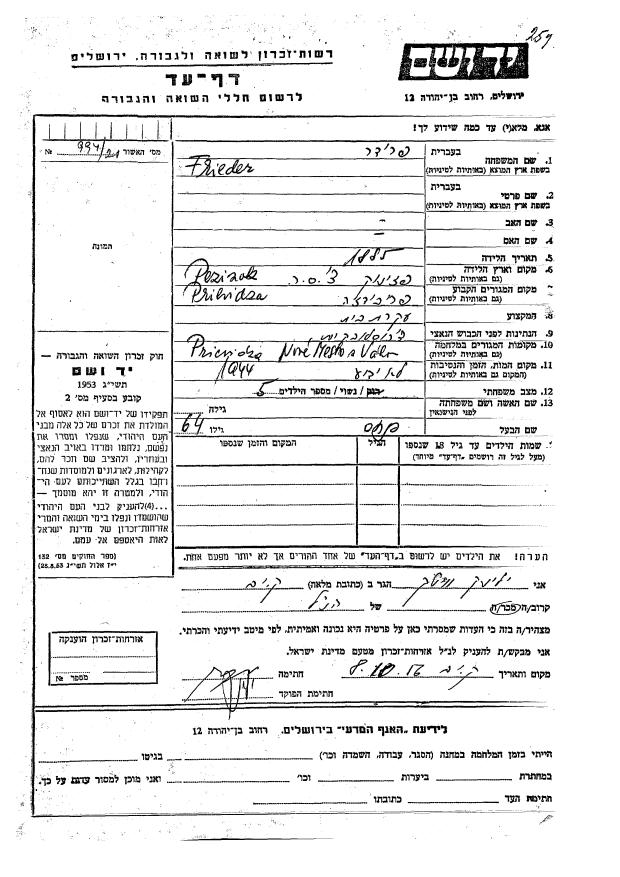 259
יד ושם
רשות-זכרון לשואה ולגבורה, ירושלים
דף-עד
לרשום חללי השואה והגבורה
ירושלים, רחוב בן-יהודה 12
אנא, מלא(י) עד כמה שידוע לך!
מס' האשור 994/21 №
תמונה
1. שם המשפחה בעברית פרידר
בשפת ארץ המוצא (באותיות לטיניות) Frieder
2. שם פרטי בעברית
בשפת ארץ המוצא (באותיות לטיניות)
3. שם האב –
4. שם האם –
5. תאריך הלידה 1885
6. מקום וארץ הלידה צ'.ס.ר.
(גם באותיות לטיניות)
מקום המגורים הקבוע פריבידזה Prievidza
(גם באותיות לטיניות)
8. המקצוע עקרת בית
9. הנתינות לפני הכבוש הנאצי
10. מקומות המגורים במלחמה Prievidza Nové Mesto n Váhom
(גם באותיות לטיניות)
11. מקום המות, הזמן והנסיבות לא ידוע 1944
(המקום גם באותיות לטיניות)
12. מצב משפחתי רווק / נשוי / מספר הילדים 5
13. שם האשה ושם משפחתה לפני הנישואין גילה
שם הבעל פנחס גילו 64
שמות הילדים עד גיל 18 שנספו הגיל המקום והזמן שנספו
(מעל לגיל זה רושמים "דף-עד" מיוחד)
חוק זכרון השואה והגבורה —
יד ושם
תשי"ג 1953
קובע בסעיף מס' 2
תפקידו של יד-ושם הוא לאסוף אל
המולדת את זכרם של כל אלה מבני
העם היהודי, שנפלו ומסרו את
נפשם, נלחמו ומרדו באויב הנאצי
ובעוזריו, ולהציב שם וזכר להם,
לקהילות, לארגונים ולמוסדות שנח-
רבו בגלל השתייכותם לעם היהו-
די, ולמטרה זו יהא מוסמך —
...(4)להעניק לבני העם היהודי
שהושמדו ונפלו בימי השואה והמרי
אזרחות-זכרון של מדינת ישראל
לאות היאספם אל עמם.
(ספר החוקים מס' 132
י"ז אלול תשי"ג 28.8.53)
הערה! את הילדים יש לרשום ב"דף-העד" של אחד ההורים אך לא יותר מפעם אחת.
אני הגר ב (כתובת מלאה) ק. ים
קרוב/ה מכר/ה של הנ"ל
מצהיר/ה בזה כי העדות שמסרתי כאן על פרטיה היא נכונה ואמיתית, לפי מיטב ידיעתי והכרתי.
אני מבקש/ת להעניק לנ"ל אזרחות-זכרון מטעם מדינת ישראל.
מקום ותאריך ק. ים 8.10.56 חתימה
חתימת הפוקד
אזרחות-זכרון הוענקה
מספר №
לידיעת "האגף המדעי" בירושלים, רחוב בן-יהודה 12
הייתי בזמן המלחמה במחנה (הסגר, עבודה, השמדה וכו') בגיטו
במחתרת ביערות וכו' ואני מוכן למסור עדות על כך.
חתימת העד כתובתו